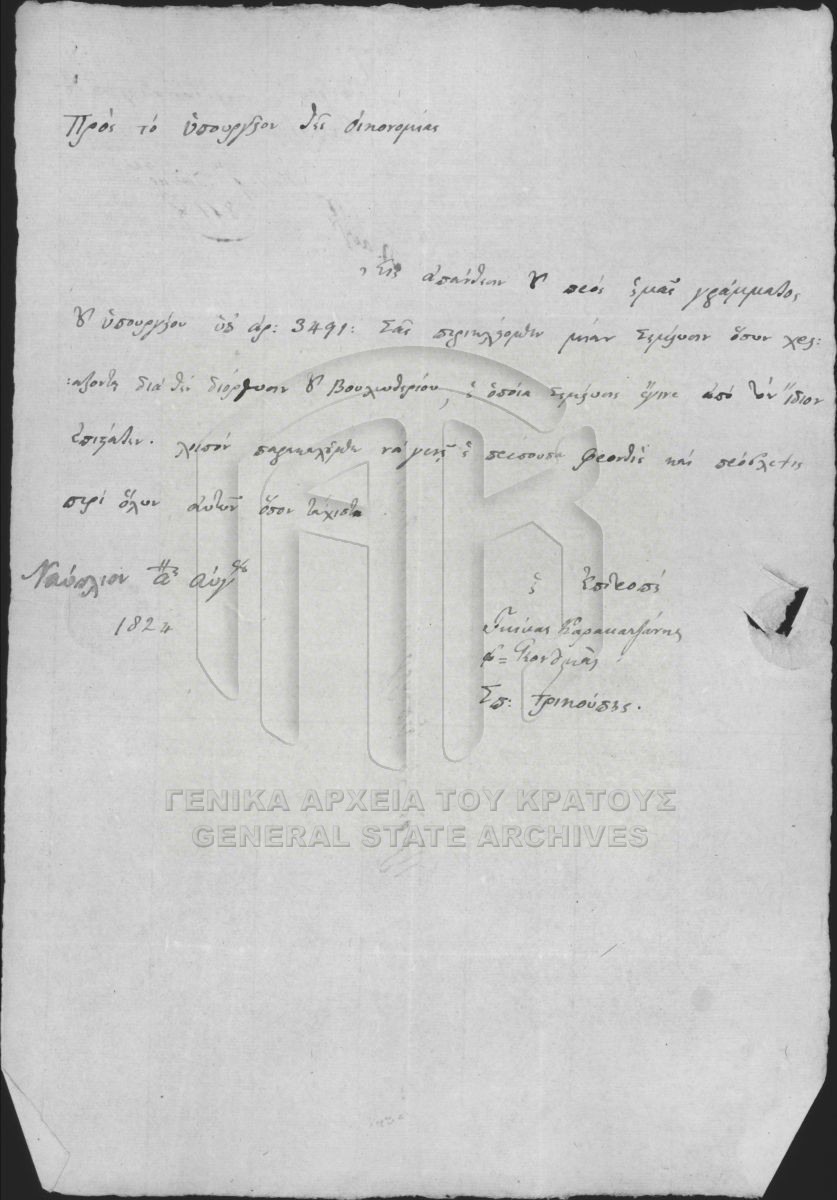 Πρὸς τὸ ὑπουργεῖον τῆς οἰκονομίας
Εἰς ἀπάντησιν τοῦ πρὸς ἡμᾶς γράμματος
τοῦ ὑπουργείου ὑπ ἀρ: 3491: Σᾶς περικλείομεν μίαν σημείωσιν ὅσων χρει:
:άζονται διὰ τὴν διόρθωσιν τοῦ Βουλευτηρίου, ἡ ὁποία σημείωσις ἔγινε ἀπὸ τὸν ἴδιον
ἐπιστάτην. λοιπὸν παρακαλεῖσθε νὰ γενῇ ἡ πρέπουσα φροντὶς καὶ
περὶ ὅλων αὐτῶν ὅσον τάχιστα
Ναύπλιον αὐγ
1824
ἡ ἐπιτροπὴ
Γκίκας Καρακατζάνης
Σπ: Τρικούπης.
ΓΕΝΙΚΑ ΑΡΧΕΙΑ ΤΟΥ ΚΡΑΤΟΥΣ
GENERAL STATE ARCHIVES